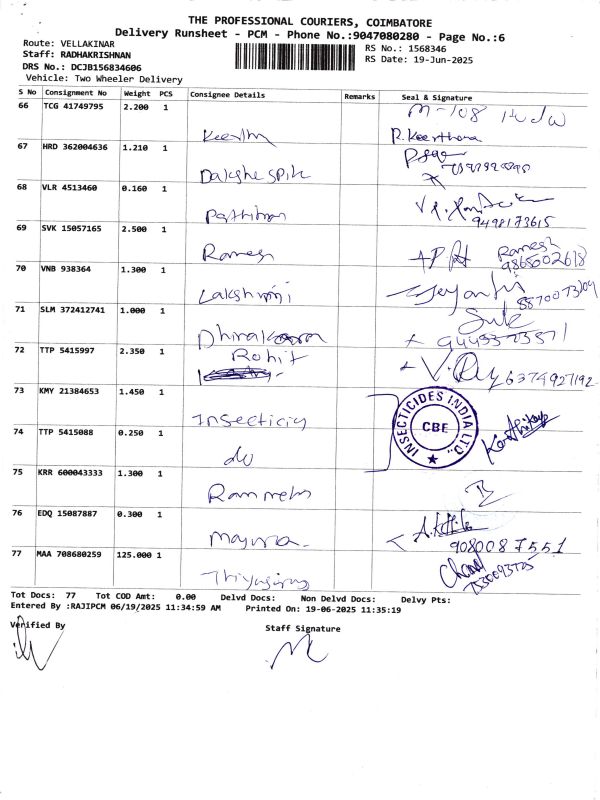 THE PROFESSIONAL COURIERS, COIMBATORE
Delivery Runsheet - PCM - Phone No.:9047080280 - Page No.:6
Route: VELLAKINAR
Staff: RADHAKRISHNAN
DRS No.: DCJB156834606
Vehicle: Two Wheeler Delivery
RS No.: 1568346
RS Date: 19-Jun-2025
S No Consignment No Weight PCS Consignee Details Remarks Seal & Signature
66 TCG 41749795 2.200 1 Keerthy M-108
R.Keerthana
67 HRD 362004636 1.210 1
68 VLR 4513460 0.160 1
9498173615
69 SVK 15057165 2.500 1 Ramesh Ramesh
9865002618
70 VNB 938364 1.300 1 Lakshmi Jeyanthi
8870073109
71 SLM 372412741 1.000 1
72 TTP 5415997 2.350 1 Rohit
6374927192
73 KMY 21384653 1.450 1 Insecticis
INSECTICIDES INDIA LTD.
CBE
74 TTP 5415088 0.250 1 do Karthikey
75 KRR 600043333 1.300 1
76 EDQ 15087887 0.300 1 Mayura
9080087551
77 MAA 708680259 125.000 1
Tot Docs: 77 Tot COD Amt: 0.00 Delvd Docs: Non Delvd Docs: Delvy Pts:
Entered By :RAJIPCM 06/19/2025 11:34:59 AM Printed On: 19-06-2025 11:35:19
Verified By Staff Signature